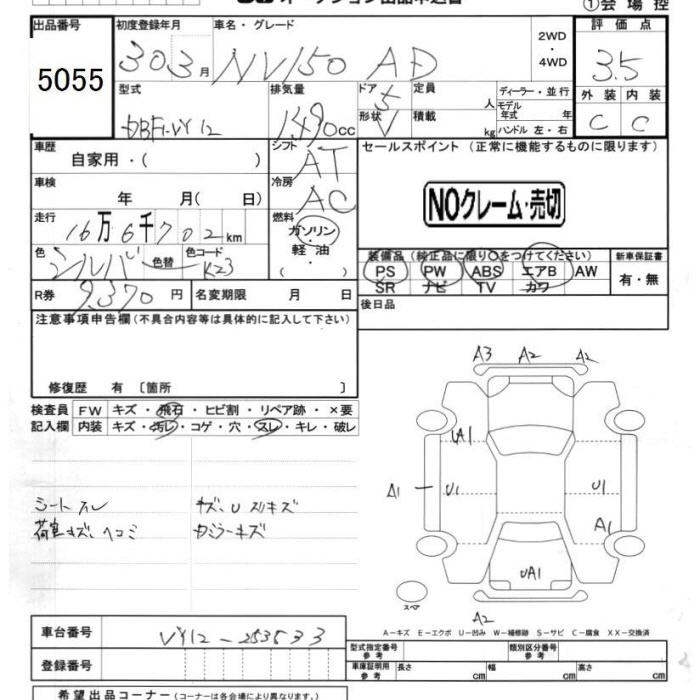 ①会場控
出品番号 初度登録年月 車名・グレード 2WD ・ 4WD 評価点
5055 30 3月 NV150 AD 3.5
型式 排気量 ドア 定員 ディーラー・並行 外装 内装
DBF-VY12 1490cc 5 人 モデル年式 年式 C C
形状 V 積載 kg ハンドル 左・右
車歴 シフト セールスポイント（正常に機能するものに限ります）
自家用・（ ） AT
車検 冷房
年 月（ 日） AC NOクレーム・売切
走行 燃料
16万6千702km ガソリン・軽油・
色 色替 色コード 装備品（純正品に限り○をつけてください） 新車保証書
シルバー K23 PS PW ABS エアB AW 有・無
R券 9,370円 名変期限 月 日 SR ナビ TV カワ
注意事項申告欄（不具合内容等は具体的に記入して下さい） 後日品
修復歴 有〔箇所 〕
検査員 FW キズ・飛石・ヒビ割・リペア跡・×要
記入欄 内装 キズ・汚レ・コゲ・穴・スレ・キレ・破レ
A3 A2 A2
UA1
A1 U1 U1
A1
シートスレ キズ、U スリキズ
荷室キズ、ヘコミ カミラーキズ
UA1
スペア
A2
A－キズ E－エクボ U－凹み W－補修跡 S－サビ C－腐食 XX－交換済
車台番号 VY12-253533
登録番号
型式指定番号 参考 類別区分番号 参考
車庫証明用 参考 長さ cm 幅 cm 高さ cm
希望出品コーナー（コーナーは各会場により異なります。）